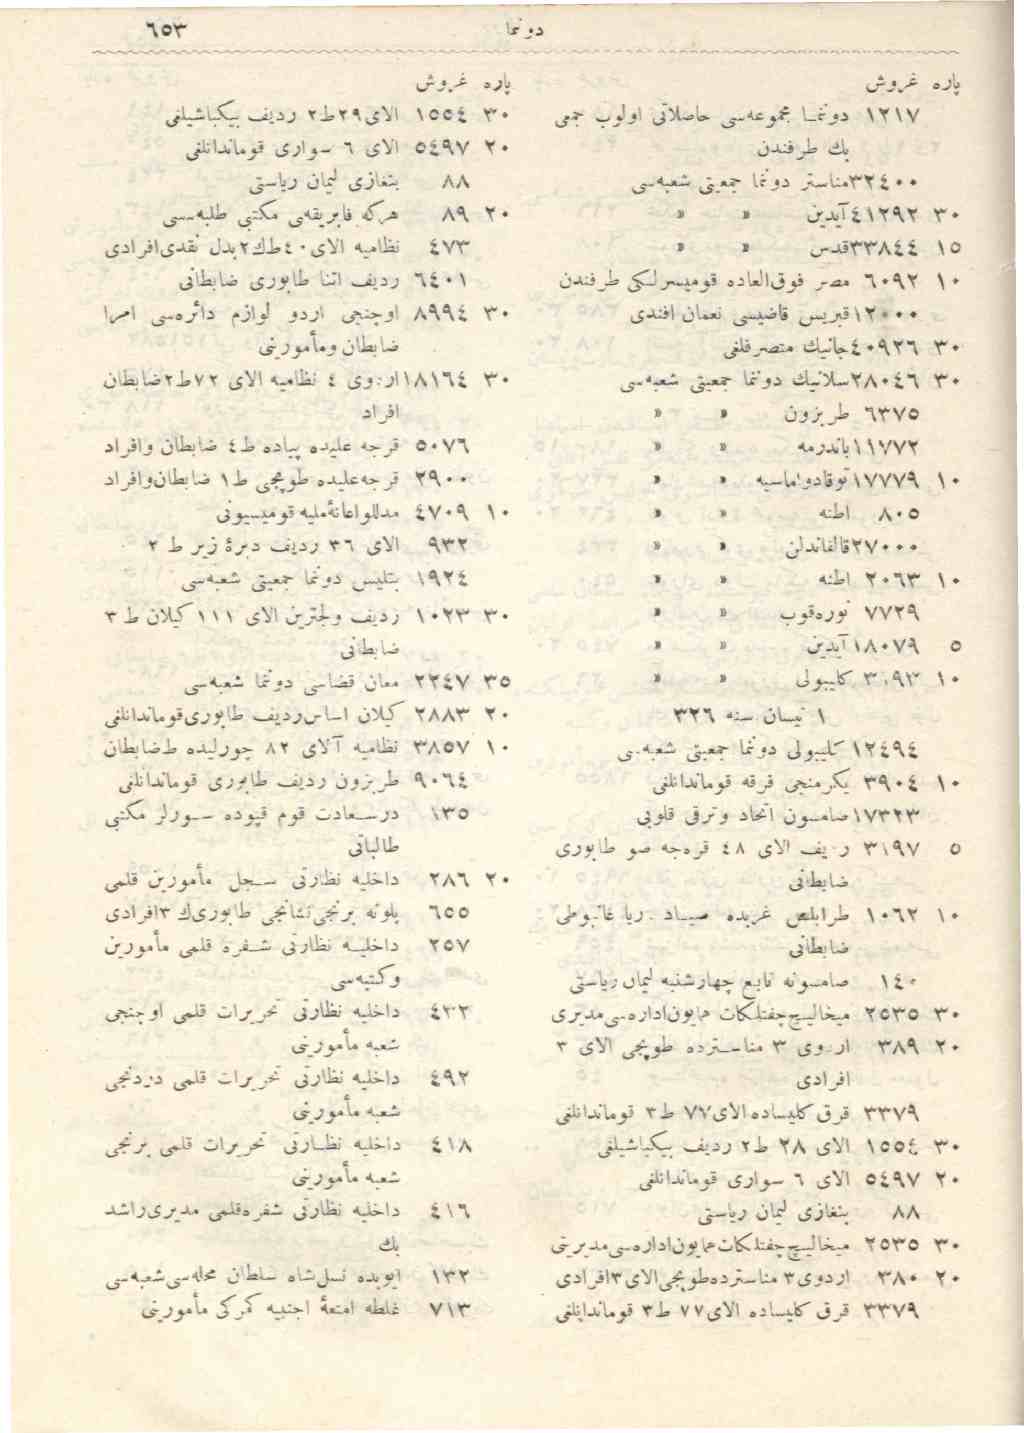 دوننما ٦٥٣
پاره غروش
١٢١٧ دوننمـا مجموعه‌سی حاصلاتی اولوب جمی
بك طرفندن
٣٢٤٠٠ مناستر دوننما جمعیتی شعبه‌سی
٣٠ ٤١٢٩٢ آیدین » »
١٥ ٣٣٨٤٤ قدس » »
١٠ ٦٠٩٢ مصر فوق‌العاده قومیسرلكی طرفندن
١٢٠٠٠ قبریس قاضیسی نعمان افندی
٣٠ ٤٠٩٢٦ جانیك متصرفلغی
٣٠ ٢٨٠٤٦ سلانیك دوننما جمعیتی شعبه‌سی
٦٣٧٥ طربزون » »
١١٧٧٢ باندرمه » »
١٠ ١٧٧٧٩ توقادواماسیه » »
٨٠٥ اطنه » »
٢٧٠٠٠ قالفاندلن » »
١٠ ٢٠٦٣ اطنه » »
٧٧٢٩ نوره‌قوب » »
٥ ١٨٠٧٩ آیدین » »
١٠ ٣١٩٣ كلیبولی » »
١ نیسان سنه ٣٢٦
١٢٤٩٤ كلیبولی دوننما جمعیتی شعبه‌سی
١٠ ٣٩٠٤ یكرمنجی فرقه قوماندانلغی
١٧٣٢٣ صامسون اتحاد وترقی قلوبی
٥ ٣١٩٧ ردیف الای ٤٨ قره‌جه صو طابوری
ضابطانی
١٠ ١٠٦٢ طرابلس غربده صیـاد دریا غانبوطی
ضابطانی
١٤٠ صامسونه تابع چهارشنبه لیمان ریاستی
٣٠ ٢٥٣٥ میخالیـچ چفتلكات همایون اداره‌سی مدیری
٢٠ ٣٨٩ اردوی ٣ مناسـترده طوپجی الای ٣
افرادی
٣٣٧٩ قرق كلیساده الای ٧٧ ط ٣ قوماندانلغی
٣٠ ١٥٥٤ الای ٢٨ ط ٢ ردیف بیكباشیلغی
٢٠ ٥٤٩٧ الای ٦ سواری قوماندانلغی
٨٨ بنغازی لیمان ریاستی
٣٠ ٢٥٣٥ میخالیـچ چفتلكات همایون اداره‌سی مدیریتی
٢٠ ٣٨٠ اردوی ٣ مناسترده طوپجی الای ٣ افرادی
٣٣٧٩ قرق كلیساده الای ٧٧ ط ٣ قوماندانلغی
پاره غروش
٣٠ ١٥٥٤ الای ٢٩ ط ٢ ردیف بیكباشیلغی
٢٠ ٥٤٩٧ الای ٦ سواری قوماندانلغی
٨٨ بنغازی لیمان ریاستی
٢٠ ٨٩ هركه فابریقه‌سی مكتبی طلبه‌سی
٤٧٣ نظامیه الای ٤٠ ط ك ٢ بدل نقدی افرادی
٦٤٠١ ردیف اتنا طابوری ضابطانی
٣٠ ٨٩٩٤ اوچنجی اردو لوازم دائره‌سی امرا
ضابطان ومأمورینی
٣٠ ١٨١٦٤ اردوی ٤ نظامیه الای ٧٢ ط ٢ ضابطان
افراد
٥٠٧٦ قرجه علیده پیاده ط ٤ ضابطان وافراد
٢٩٠٠ قرجه‌علیده طوپجی ط ١ ضابطان وافراد
١٠ ٤٧٠٩ مدللو اعانهٔ ملیه قومیسیونی
٩٣٢ الای ٣٦ ردیف دبرهٔ زیر ط ٢
١٩٢٤ بتلیس دوننما جمعیتی شعبه‌سی
٣٠ ١٠٢٣ ردیف ولچترین الای ١١١ كیلان ط ٣
ضابطانی
٣٥ ٢٢٤٧ معان قضاسی دوننما شعبه‌سی
٢٠ ٢٨٨٣ كیلان اساس ردیف طابوری قوماندانلغی
١٠ ٣٨٥٧ نظامیه آلای ٨٢ چورلیده ط ضابطان
٩٠٦٤ طربزون ردیف طابوری قوماندانلغی
١٣٥ درسـعادت قوم قپوده سـورلر مكتبی
طالباتی
٢٠ ٢٨٦ داخلیه نظارتی سـجل مأمورین قلمی
٦٥٥ پلونه برنجی نشانجی طابوری ك ٣ افرادی
٢٥٧ داخلیـه نظارتی شـفره قلمی مأمورین
وكتبه‌سی
٤٣٢ داخلیه نظارتی تحریرات قلمی اوچنجی
شعبه مأمورینی
٤٩٢ داخلیه نظارتی تحریرات قلمی دردنجی
شعبه مأمورینی
٤١٨ داخلیه نظـارتی تحریرات قلمی برنجی
شعبه مأمورینی
٤١٦ داخلیه نظارتی شفره قلمی مدیری راشد
بك
١٣٢ ایوبده نسل‌شاه سلطان محله‌سی شعبه‌سی
٧١٣ غلطه امتعهٔ اجنبیه كمركی مأمورینی